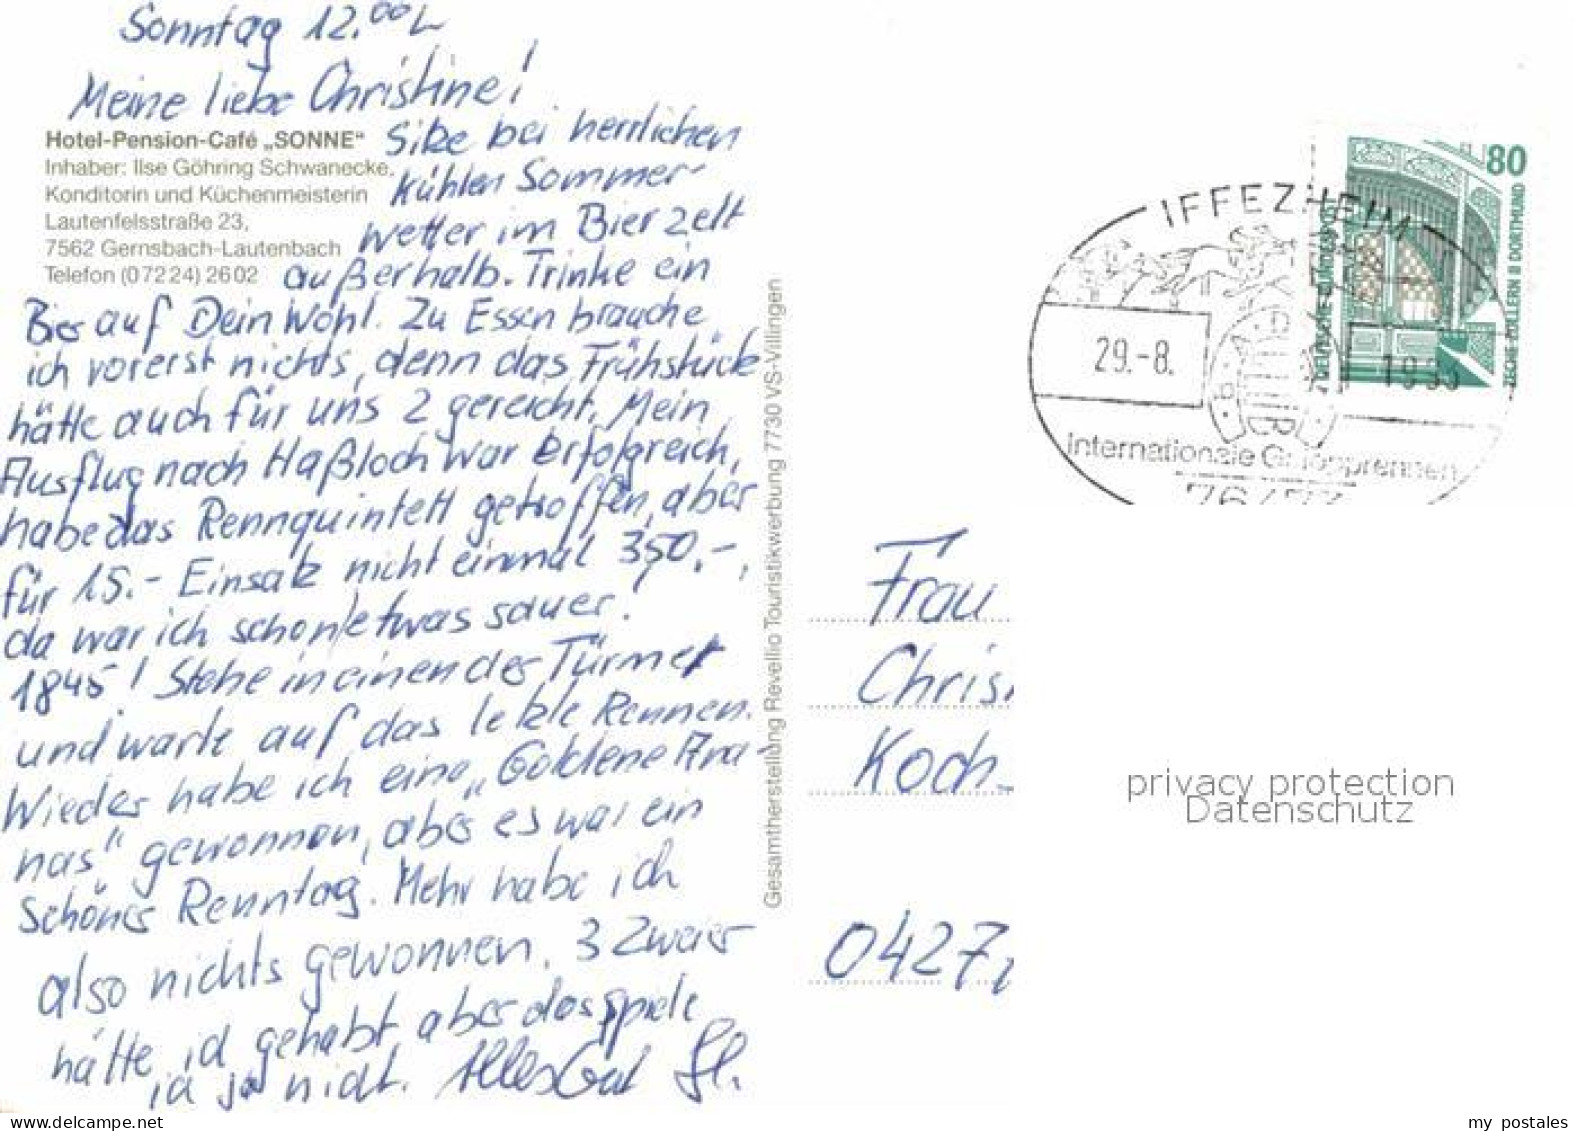 Sonntag 12.00
Meine liebe Christine!
Hotel-Pension-Café „SONNE“
Inhaber: Ilse Göhring Schwanecke,
Konditorin und Küchenmeisterin
Lautenfelsstraße 23,
7562 Gernsbach-Lautenbach
Telefon (07224) 2602
Sitze bei herrlichen
kühlen Sommer-
wetter im Bierzelt
außerhalb. Trinke ein
Bier auf Dein Wohl. Zu Essen brauche
ich vorerst nichts, denn das Frühstück
hätte auch für uns 2 gereicht. Mein
Ausflug nach Haßloch war erfolgreich,
habe das Rennquintett getroffen, aber
für 15.- Einsatz nicht einmal 350.-,
da war ich schon etwas sauer!
1845! Stehe in einen der Türme
und warte auf das letzte Rennen.
Wieder habe ich eine „Goldene Ana-
nas“ gewonnen, aber es war ein
schöner Renntag. Mehr habe ich
also nichts gewonnen. 3 Zweier
hätte ich gehabt, aber das spiele
ich ja nicht. Alles Gut
Gesamtherstellung Revellio Touristikwerbung 7730 VS-Villingen
80
DEUTSCHE BUNDESPOST
ZECHE ZOLLERN II DORTMUND
IFFEZHEIM
29.-8.
Internationale Galopprennen
Frau
Chris
Koch-
0427
privacy protection
Datenschutz
my postales